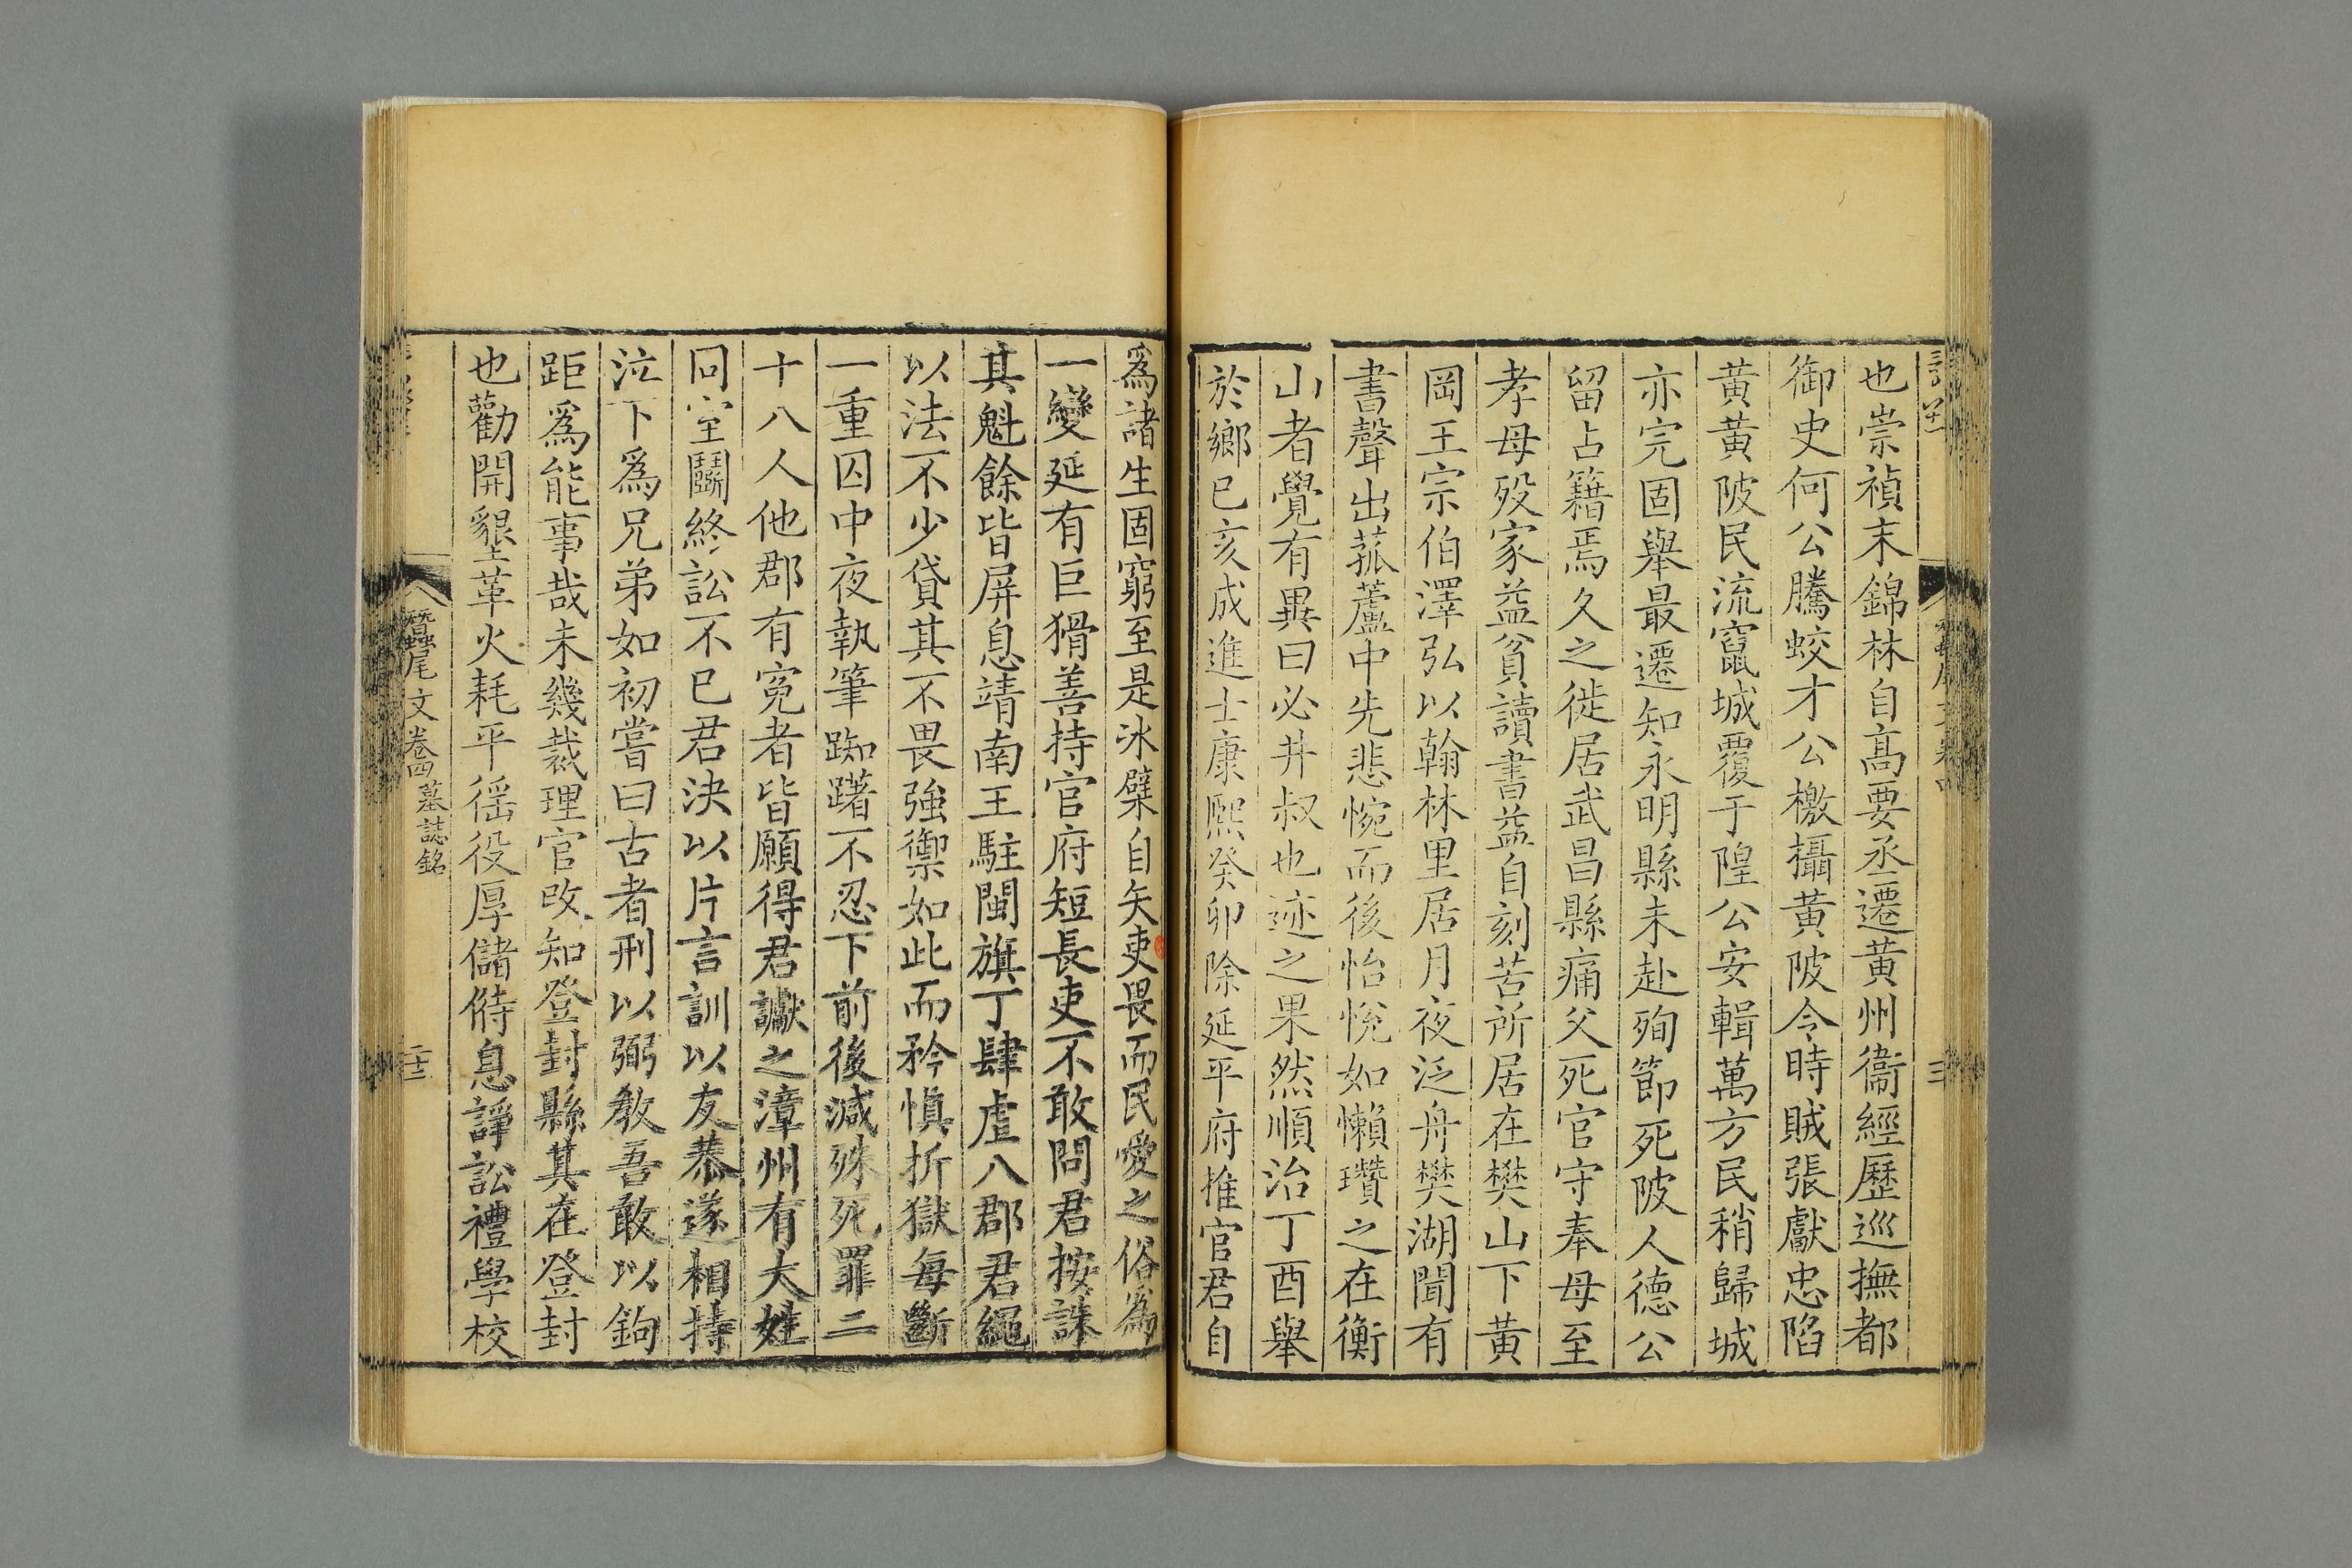 也崇禎末錦林自高要丞遷黃州衞經歷巡撫都
御史何公騰蛟才公檄攝黃陂令時賊張獻忠陷
黃黃陂民流竄城覆于隍公安輯萬方民稍歸城
亦完固舉最遷知永明縣未赴殉節死陂人德公
留占籍焉久之徙居武昌縣痛父死官守奉母至
孝母歿家益貧讀書益自刻苦所居在樊山下黃
岡王宗伯澤弘以翰林里居月夜泛舟樊湖聞有
書聲出菰蘆中先悲惋而後怡悅如懶瓚之在衡
山者覺有異曰必井叔也迹之果然順治丁酉舉
於鄉已亥成進士康熙癸卯除延平府推官君自
爲諸生固窮至是冰檗自矢吏畏而民愛之俗爲
一變延有巨猾善持官府短長吏不敢問君按誅
其魁餘皆屏息靖南王駐閩旗丁肆虐八郡君繩
以法不少貸其不畏強禦如此而矜愼折獄每斷
一重囚中夜執筆踟躇不忍下前後減殊死罪二
十八人他郡有冤者皆願得君讞之漳州有大姓
同室鬬終訟不已君決以片言訓以友恭遂相持
泣下爲兄弟如初嘗曰古者刑以弼教吾敢以鉤
距爲能事哉未幾裁理官改知登封縣其在登封
也勸開墾革火耗平徭役厚儲偫息諍訟禮學校
蠶尾文卷四 墓誌銘 二十三